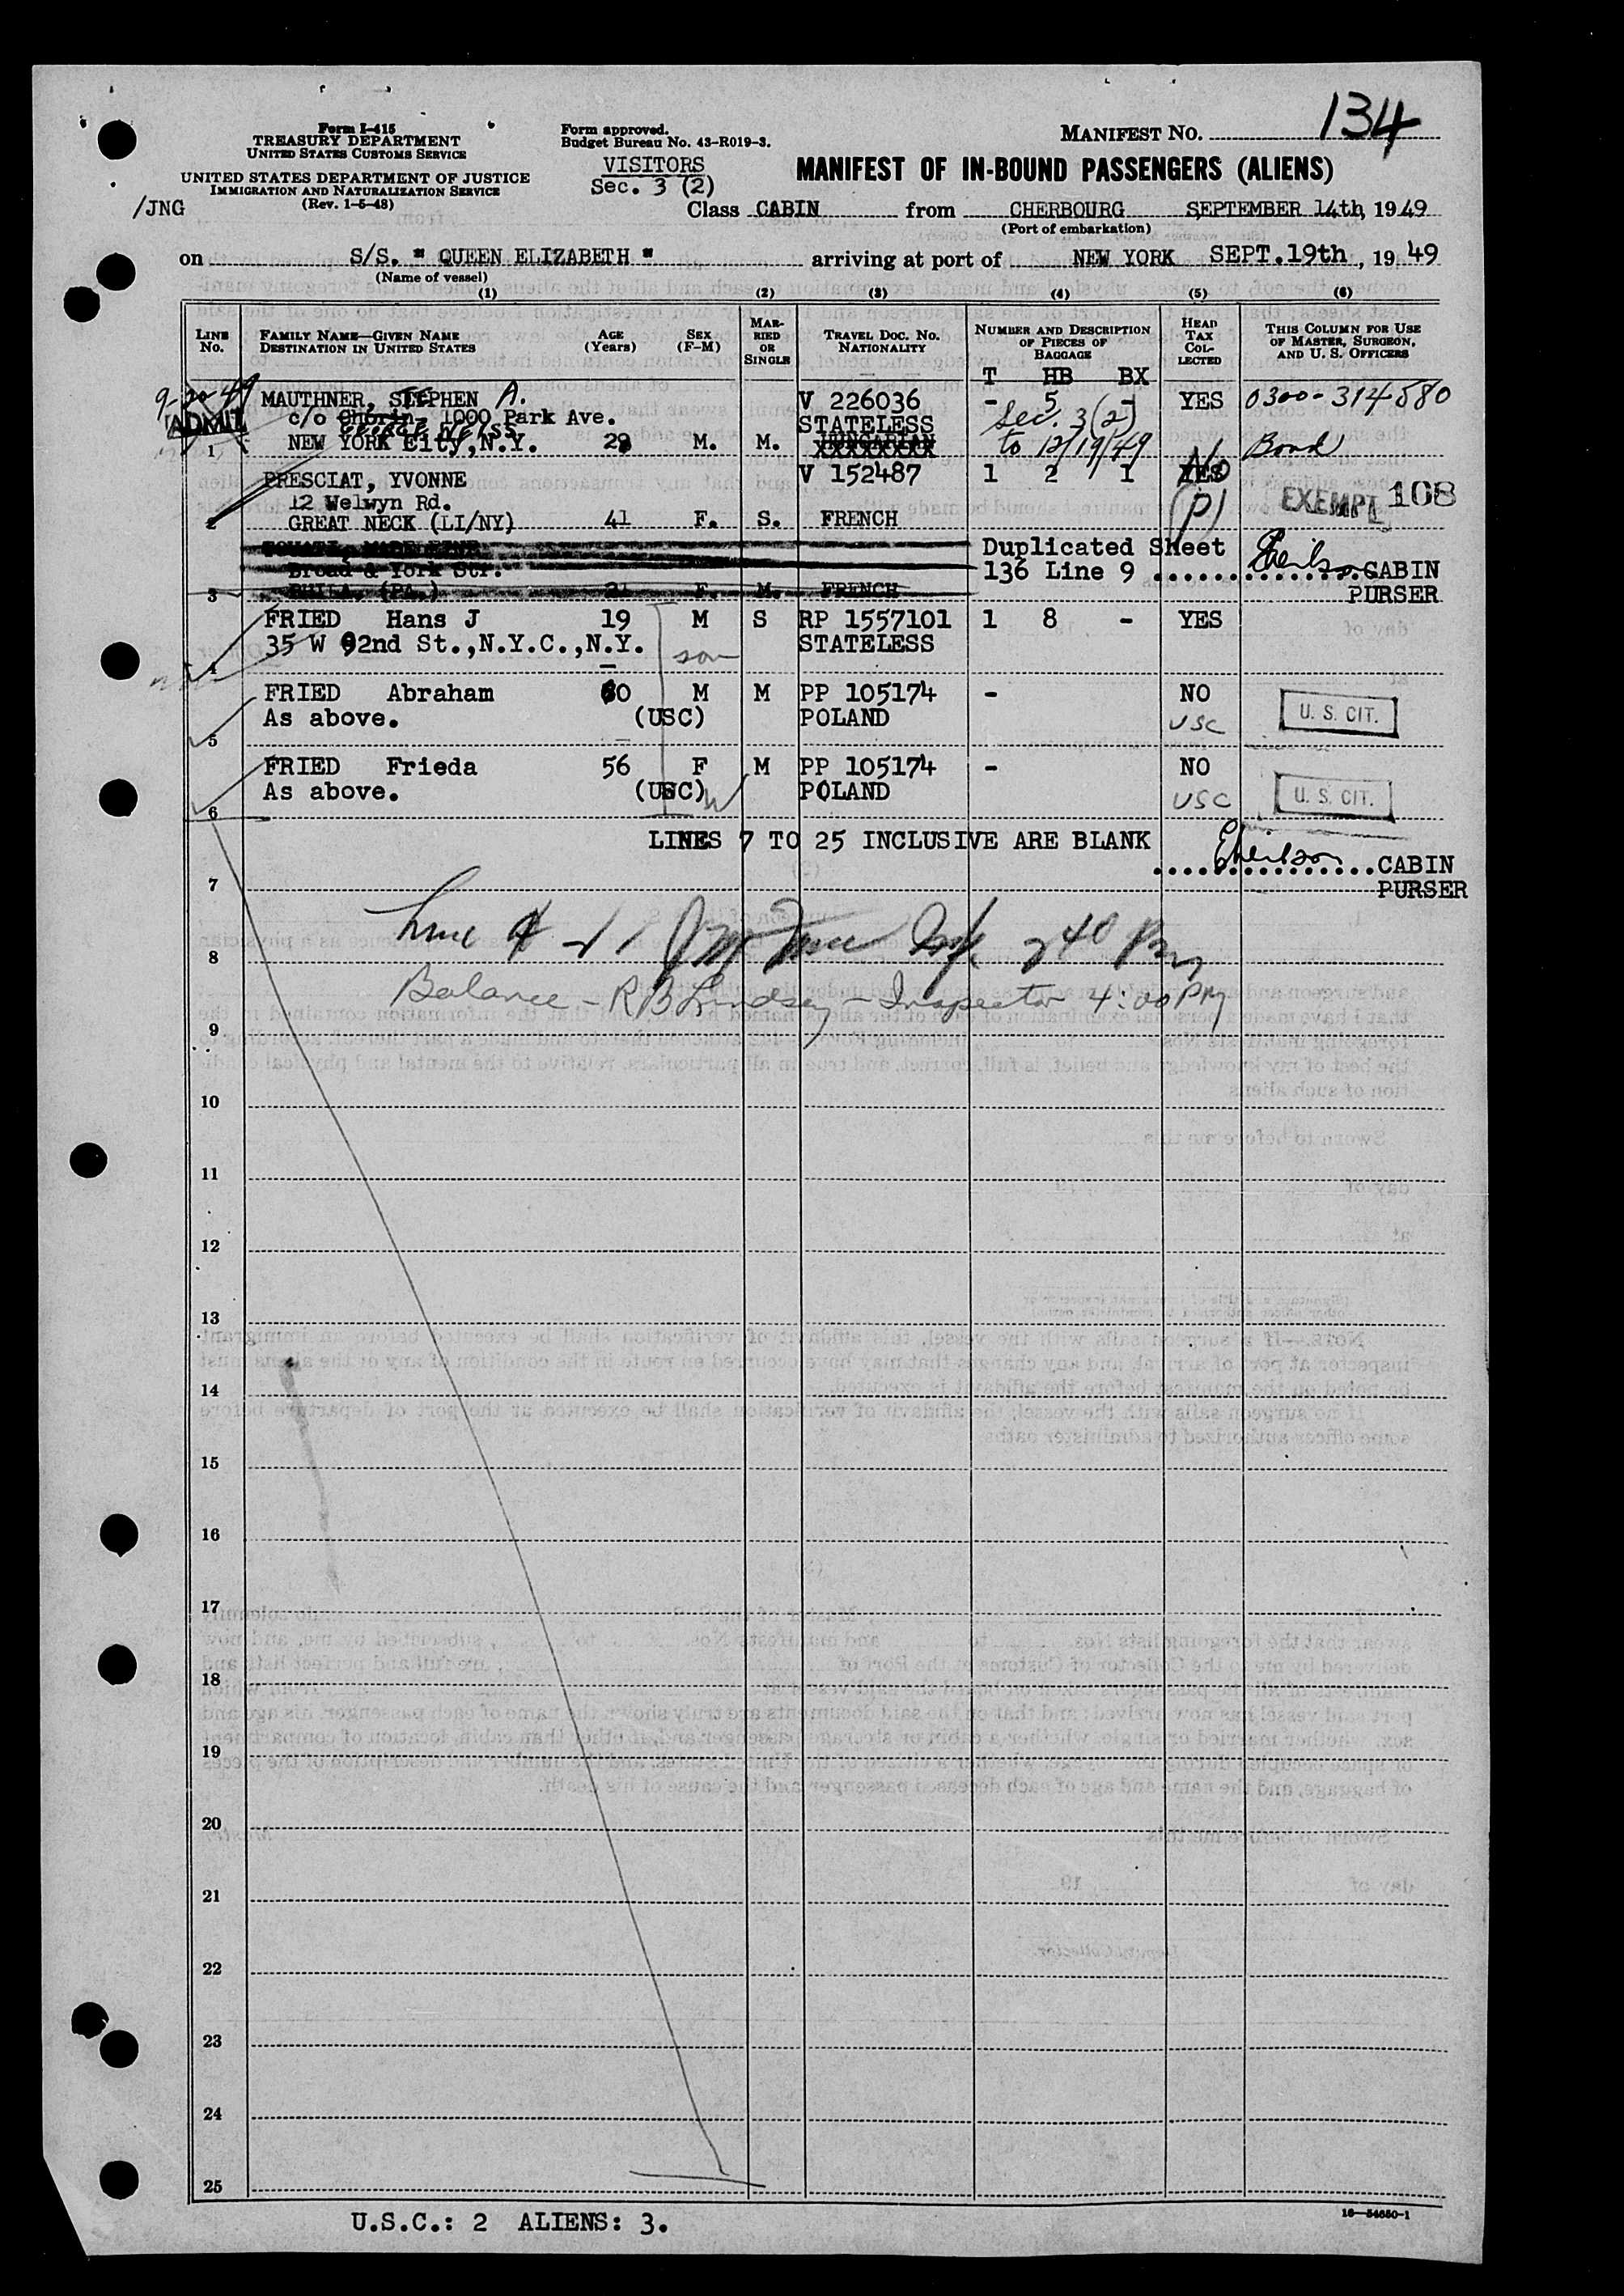 Form I-415
TREASURY DEPARTMENT
UNITED STATES CUSTOMS SERVICE
UNITED STATES DEPARTMENT OF JUSTICE
IMMIGRATION AND NATURALIZATION SERVICE
(Rev. 1-5-48)
/JNG
Form approved.
Budget Bureau No. 43-R019-3.
VISITORS
Sec. 3 (2)
MANIFEST NO. 134
MANIFEST OF IN-BOUND PASSENGERS (ALIENS)
Class CABIN from CHERBOURG SEPTEMBER 14th, 1949
(Port of embarkation)
on S/S. " QUEEN ELIZABETH " arriving at port of NEW YORK SEPT.19th, 19 49
(Name of vessel)
(1) (2) (3) (4) (5) (6)
LINE NO.
FAMILY NAME—GIVEN NAME
DESTINATION IN UNITED STATES
AGE (Years)
SEX (F-M)
MARRIED OR SINGLE
TRAVEL DOC. NO. NATIONALITY
NUMBER AND DESCRIPTION OF PIECES OF BAGGAGE
T HB BX
HEAD TAX COLLECTED
THIS COLUMN FOR USE OF MASTER, SURGEON, AND U. S. OFFICERS
9-20-49
ADMIT
MAUTHNER, STEPHEN A. V 226036 - 5 - YES 0300-314580
c/o Chorin, 1000 Park Ave. STATELESS Sec. 3(2)
George Weiss
1 NEW YORK City, N.Y. 29 M. M. HUNGARIAN to 12/19/49 Bond
PRESCIAT, YVONNE V 152487 1 2 1 YES No
12 Welwyn Rd. (P) EXEMPT 108
2 GREAT NECK (LI/NY) 41 F. S. FRENCH
Duplicated Sheet
Broad & York Str. 136 Line 9 CABIN
3 PHILA. (PA.) 21 F. M. FRENCH PURSER
FRIED Hans J 19 M S RP 1557101 1 8 - YES
35 W 92nd St.,N.Y.C.,N.Y. son STATELESS
4
FRIED Abraham 60 M M PP 105174 - NO
As above. (USC) POLAND USC U. S. CIT.
5
FRIED Frieda 56 F M PP 105174 - NO
As above. (USC) W POLAND USC U. S. CIT.
6
LINES 7 TO 25 INCLUSIVE ARE BLANK
CABIN
PURSER
7
Line 240 Pm
8
Balance - RB Lindsey - Inspector 4:00 PM
9
10
11
12
13
14
15
16
17
18
19
20
21
22
23
24
25
U.S.C.: 2 ALIENS: 3.
16—54650-1